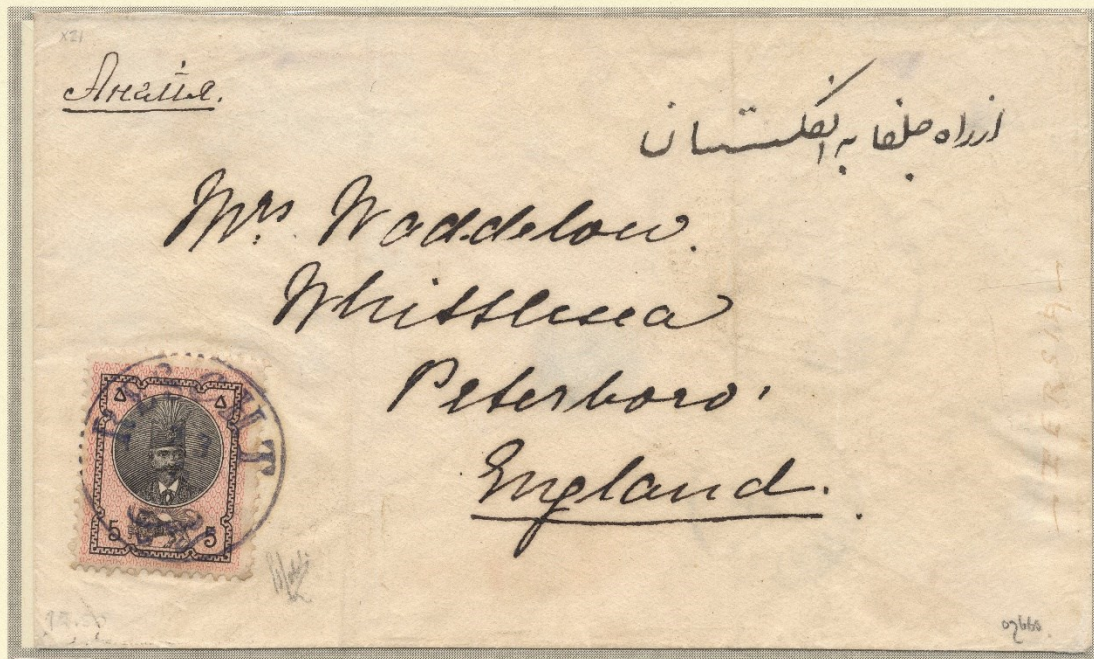 X21
Англія.
از راه جلفا به انگلستان
Mrs. Waddelow.
Whittlesea
Peterboro'
England.
RESCHT
۵ ۵
5 5
PERSIA